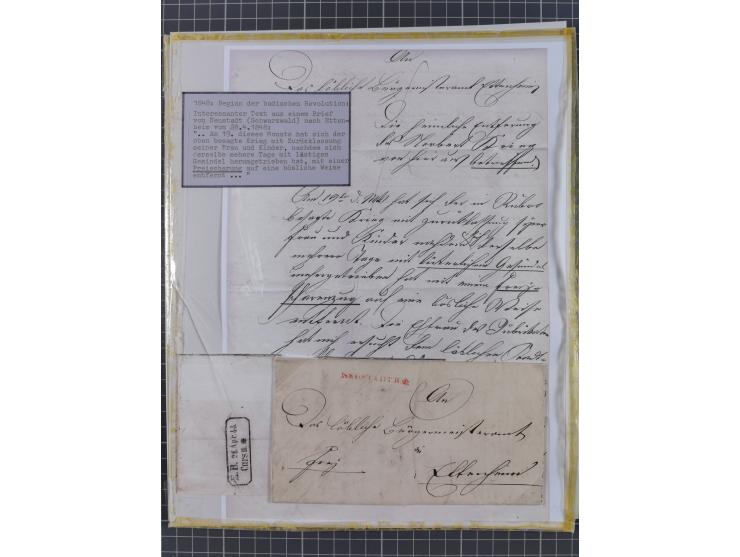 1848: Beginn der badischen Revolution:
Interessanter Text aus einem Brief
von Neustadt (Schwarzwald) nach Etten-
heim vom 28.4.1848:
".. Am 19. dieses Monats hat sich der
oben besagte Krieg mit Zurücklassung
seiner Frau und Kinder, nachdem sich
derselbe mehere Tage mit lästigen
Gesindel herumgetrieben hat, mit einer
Freischarung auf eine bösliche Weise
entfernt ... "
An
Das löbliche Bürgermeisteramt Ettenheim
Die heimliche Entfernung
des Norbert Krieg
von hier aus betreffend.
Am 19t d. Mts hat sich der in Rubro
besagte Krieg mit Zurücklassung seiner
Frau und Kinder nachdem sich derselbe
mehrere Tage mit Gesindel
umhergetrieben hat mit einem Frei-
auf eine bösliche Weise
entfernt. Die Ehefrau des
hat mich ersucht dem löblichen
E.B. 29 Apr 48
Curs II
NEUSTADT
An
Das löbliche Bürgermeisteramt
zu
frei
Ettenheim